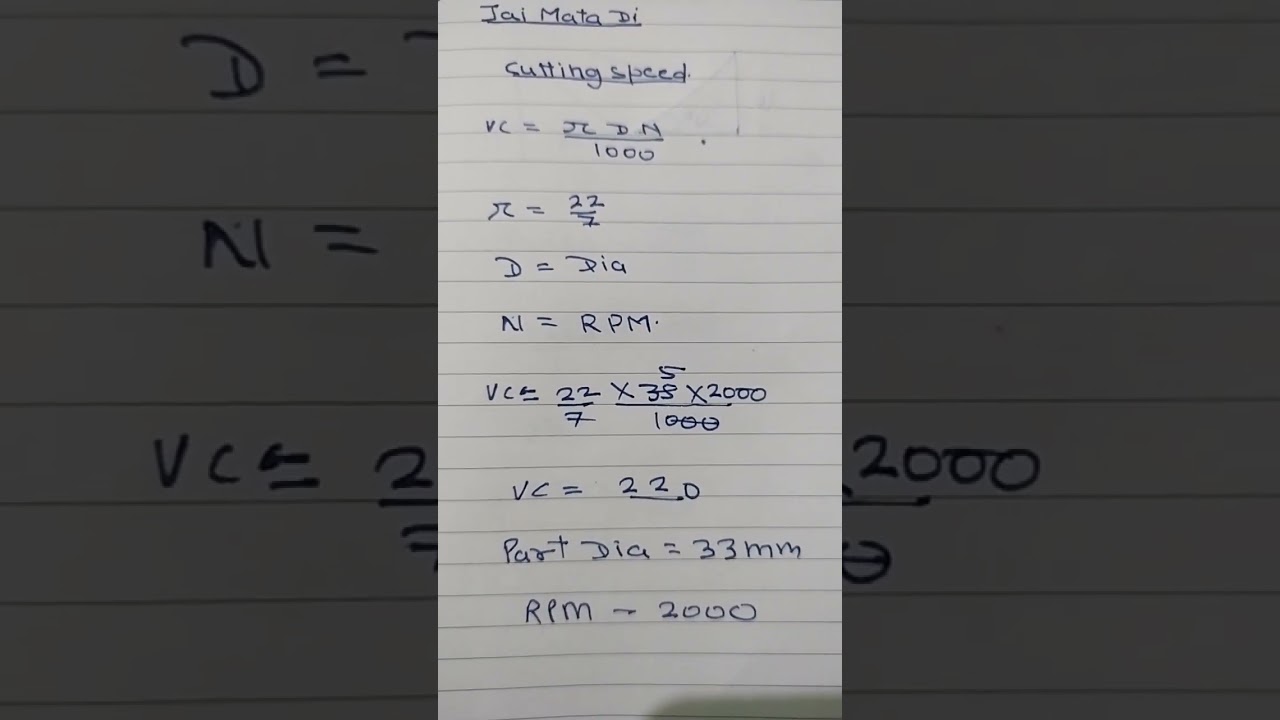 Jai Mata Di
Cutting speed.
VC = π D N / 1000
π = 22/7
D = Dia
N = RPM.
5
VC = 22/7 × 35 × 2000 / 1000
VC = 220
Part Dia = 33mm
RPM - 2000
D =
N =
VC = 2
2000